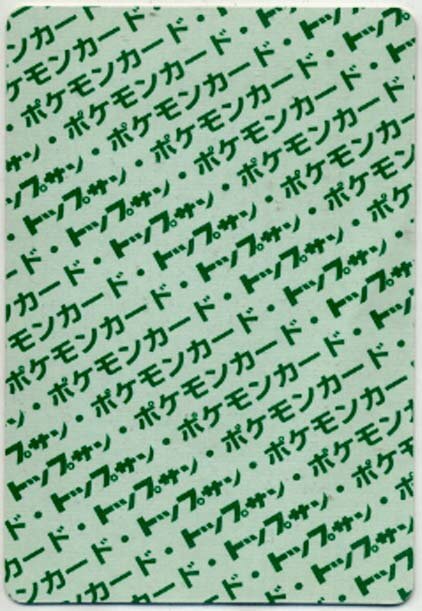 ンカード・
ケモンカード・トッ
・ポケモンカード・トップ
サン・ポケモンカード・トッ
ップサン・ポケモンカード・
・トップサン・ポケモンカード・
ド・トップサン・ポケモンカード
カード・トップサン・ポケモン
モンカード・トップサン・ポケ
ポケモンカード・トップサン・
ン・ポケモンカード・トップサン
プサン・ポケモンカード・トップ
トップサン・ポケモンカード・
ド・トップサン・ポケモンカード
カード・トップサン・ポケモン
ンカード・トップサン・ポ
カード・トップサン・
ド・トップ